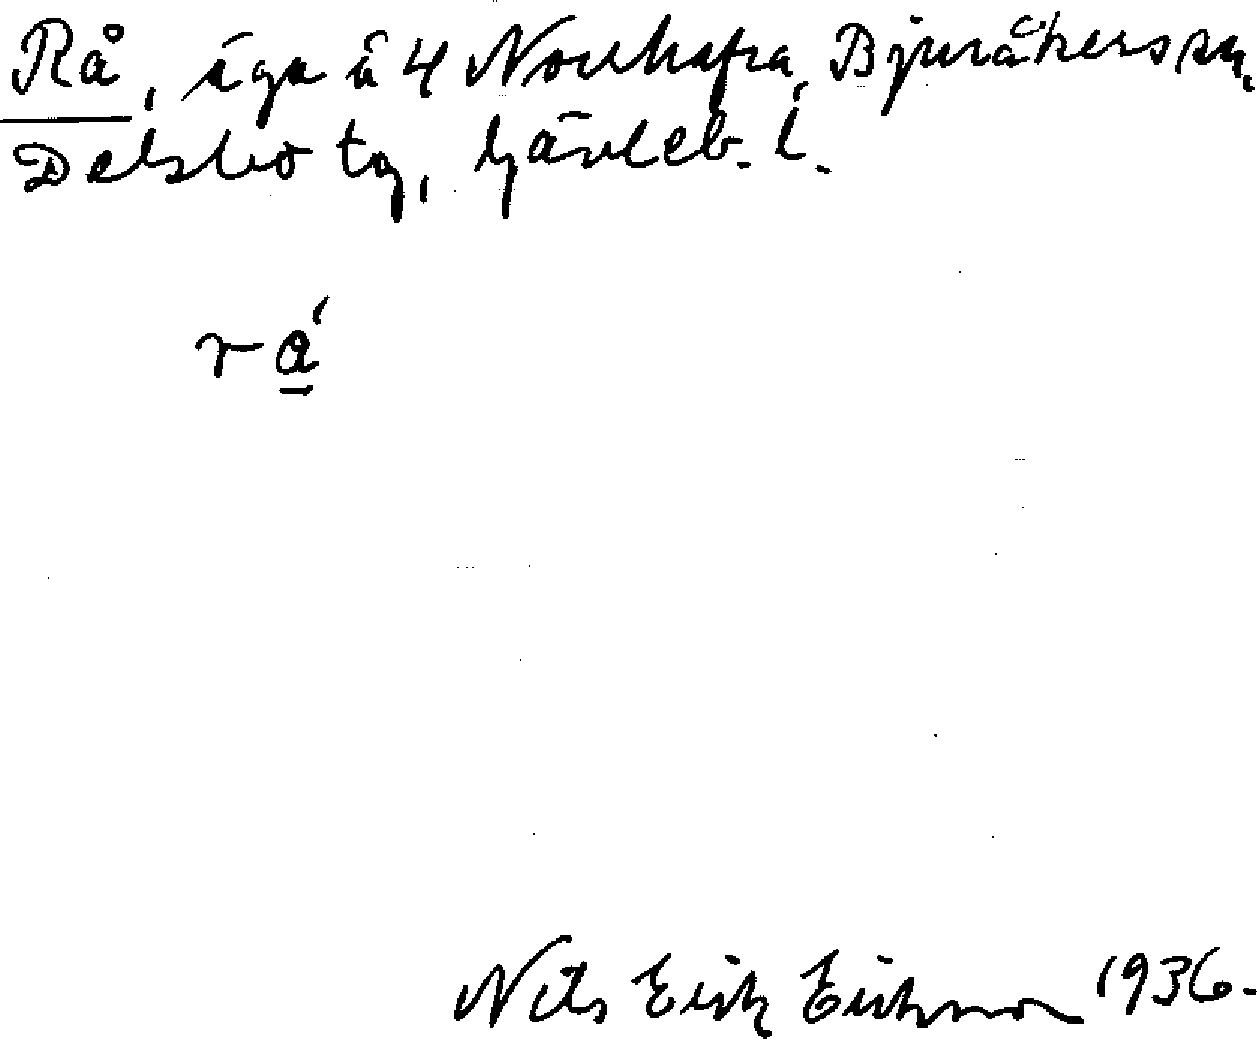 Rå, äga å 4 Norrhavra, Bjuråkers sn,
Delsbo tg, Gävleb. l.
rá
Nils Erik Erikson 1936.